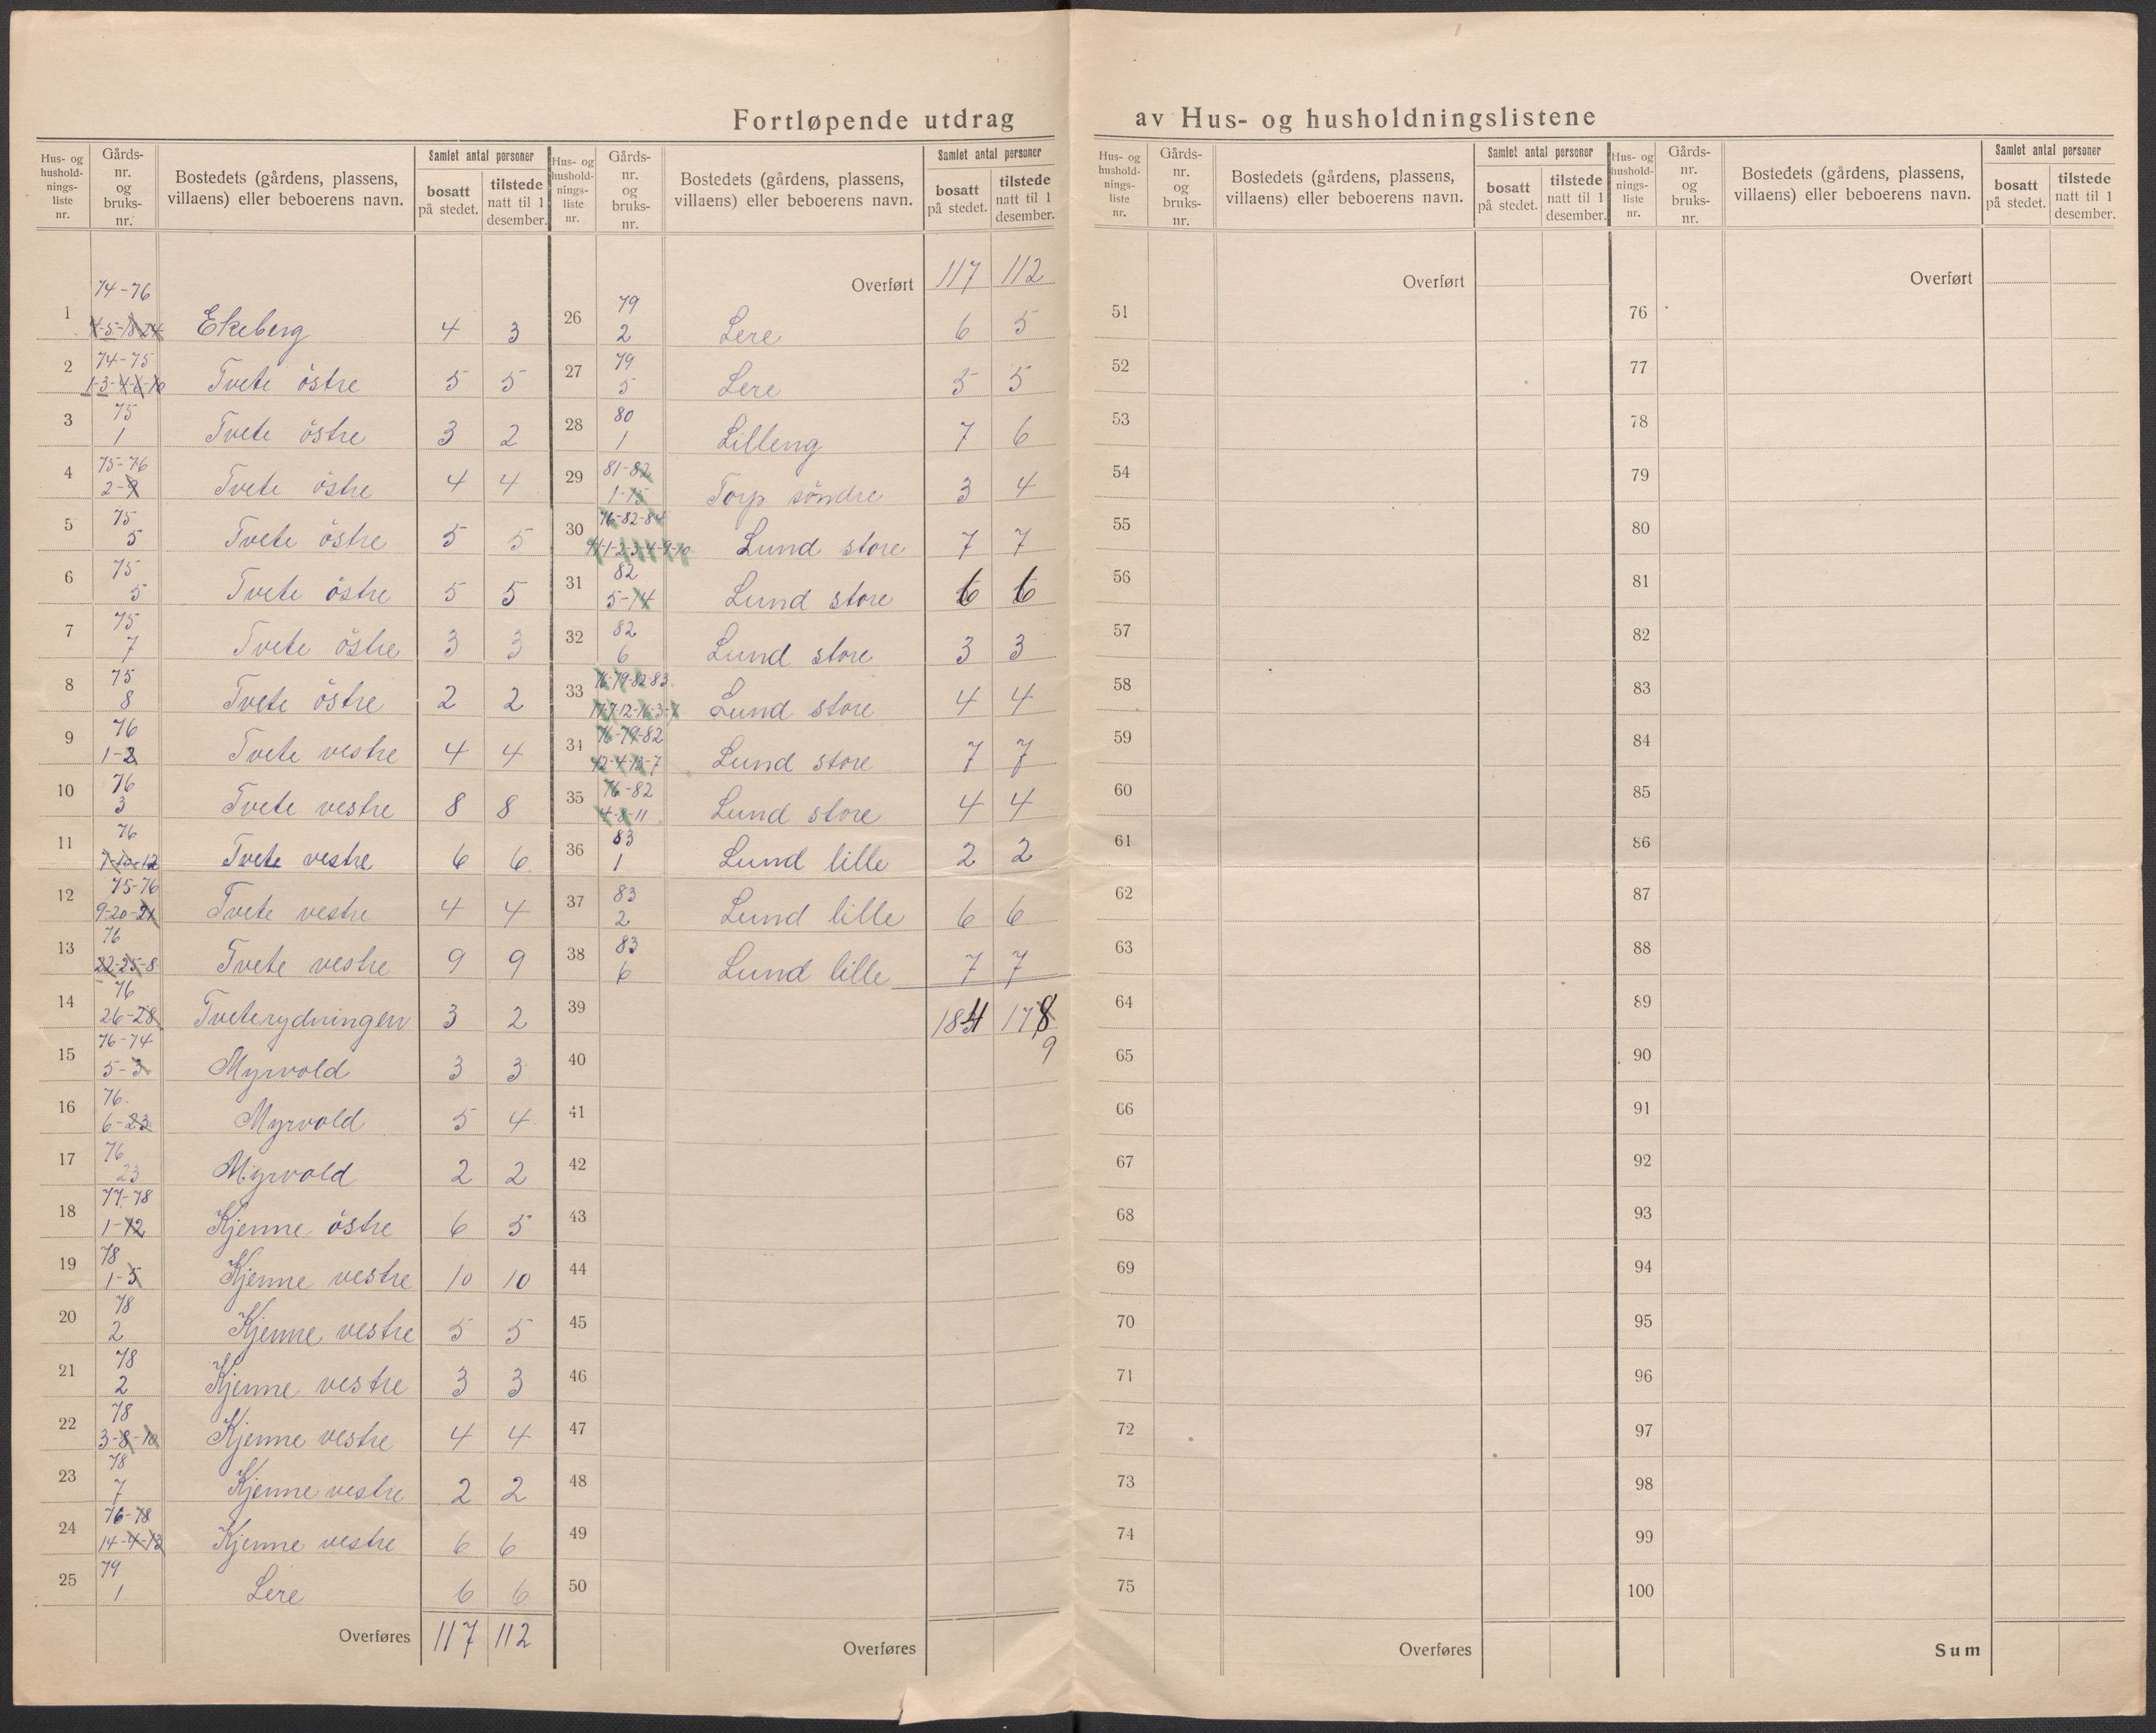 Fortløpende utdrag av Hus- og husholdningslistene
Hus- og hushold-nings-liste nr. | Gårds-nr. og bruks-nr. | Bostedets (gårdens, plassens, villaens) eller beboerens navn. | Samlet antal personer | bosatt på stedet. | tilstede natt til 1 desember.
1 | 74-76 4-5-18-24 | Ekeberg | 4 | 3
2 | 74-75 1-3-4-6-10 | Tvete östre | 5 | 5
3 | 75 1 | Tvete östre | 3 | 2
4 | 75-76 2-9 | Tvete östre | 4 | 4
5 | 75 5 | Tvete östre | 5 | 5
6 | 75 5 | Tvete östre | 5 | 5
7 | 75 7 | Tvete östre | 3 | 3
8 | 75 8 | Tvete östre | 2 | 2
9 | 76 1-2 | Tvete vestre | 4 | 4
10 | 76 3 | Tvete vestre | 8 | 8
11 | 76 7-10-12 | Tvete vestre | 6 | 6
12 | 75-76 9-20-21 | Tvete vestre | 4 | 4
13 | 76 22-25-8 | Tvete vestre | 9 | 9
14 | 76 26-28 | Tveterydningen | 3 | 2
15 | 76-74 5-3 | Myrvold | 3 | 3
16 | 76. 6-23 | Myrvold | 5 | 4
17 | 76 23 | Myrvold | 2 | 2
18 | 77-78 1-12 | Kjenne östre | 6 | 5
19 | 78 1-5 | Kjenne vestre | 10 | 10
20 | 78 2 | Kjenne vestre | 5 | 5
21 | 78 2 | Kjenne vestre | 3 | 3
22 | 78 3-8-10 | Kjenne vestre | 4 | 4
23 | 78 7 | Kjenne vestre | 2 | 2
24 | 76-78 14-4-13 | Kjenne vestre | 6 | 6
25 | 79 1 | Lere | 6 | 6
Overføres | 117 | 112
Hus- og hushold-nings-liste nr. | Gårds-nr. og bruks-nr. | Bostedets (gårdens, plassens, villaens) eller beboerens navn. | Samlet antal personer | bosatt på stedet. | tilstede natt til 1 desember.
Overført | 117 | 112
26 | 79 2 | Lere | 6 | 5
27 | 79 5 | Lere | 5 | 5
28 | 80 1 | Lilleng | 7 | 6
29 | 81-82 1-15 | Torp söndre | 3 | 4
30 | 76-82-84 1-2-3-4-9-10 | Lund store | 7 | 7
31 | 82 5-14 | Lund store | 6 | 6
32 | 82 6 | Lund store | 3 | 3
33 | 76-79-82-83. 17-7-12-16-3-7 | Lund store | 4 | 4
34 | 76-79-82 12-4-13-7 | Lund store | 7 | 7
35 | 76-82 4-8-11 | Lund store | 4 | 4
36 | 83 1 | Lund lille | 2 | 2
37 | 83 2 | Lund lille | 6 | 6
38 | 83 6 | Lund lille | 7 | 7
39 | 184 | 178
9
40
41
42
43
44
45
46
47
48
49
50
Overføres
Hus- og hushold-nings-liste nr. | Gårds-nr. og bruks-nr. | Bostedets (gårdens, plassens, villaens) eller beboerens navn. | Samlet antal personer | bosatt på stedet. | tilstede natt til 1 desember.
Overført
51
52
53
54
55
56
57
58
59
60
61
62
63
64
65
66
67
68
69
70
71
72
73
74
75
Overføres
Hus- og hushold-nings-liste nr. | Gårds-nr. og bruks-nr. | Bostedets (gårdens, plassens, villaens) eller beboerens navn. | Samlet antal personer | bosatt på stedet. | tilstede natt til 1 desember.
Overført
76
77
78
79
80
81
82
83
84
85
86
87
88
89
90
91
92
93
94
95
96
97
98
99
100
Sum